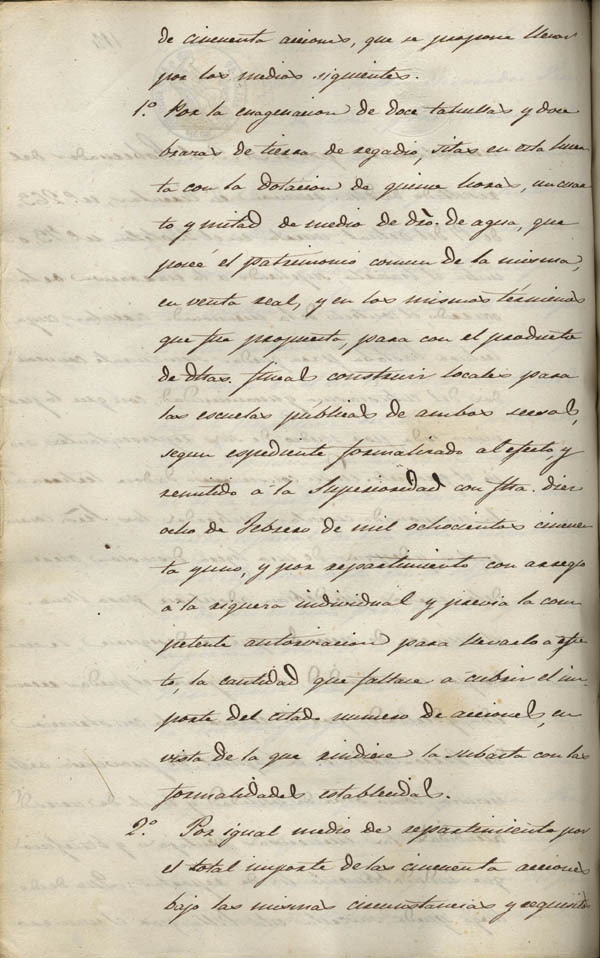 de cincuenta acciones, que se propone llevar
por los medios siguientes.
1.º Por la enagenacion de doce tahullas y doce
brazas de tierra de regadio, sitas en esta huer-
ta con la dotacion de quince horas, un cuar-
to y mitad de medio de dro. de agua, que
poseé el patrimonio comun de la misma,
en venta real, y en los mismos términos
que fue propuesta, para con el producto
de dhas. fincas construir locales para
las escuelas públicas de ambos secsos,
segun espediente formalizado al efecto, y
remitido á la Superioridad con fha. diez
ocho de Febrero de mil ochocientos cincuen-
ta y uno, y por repartimiento con arreglo
á la riqueza individual y previa la com-
petente autorizacion para llevarlo a efec-
to, la cantidad que faltase a cubrir el im-
porte del citado numero de acciones, en
vista de la que rindiere la subasta con las
formalidades establecidas.
2.º Por igual medio de repartimiento por
el total importe de las cincuenta acciones
bajo las mismas circunstancias y requisitos